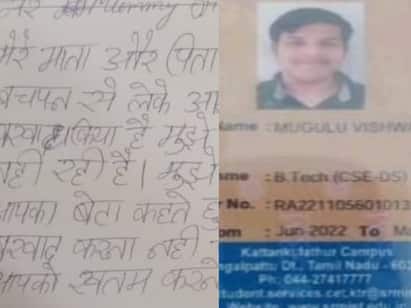 मेरे माता और पिता
बचपन से लेके आ
है मुझे
नही रही है। मुझे
आपका बेटा कहते हु
करना नही
आपको खतम करने
Name : MUGULU VISHW
me : B.Tech (CSE-DS)
r No. : RA221105601013
om : Jun-2022 To Ma
Kattankulathur Campus
galpattu Dt., Tamil Nadu - 603
Ph.: 044-27417777
student.services.cet.ktr@srmi